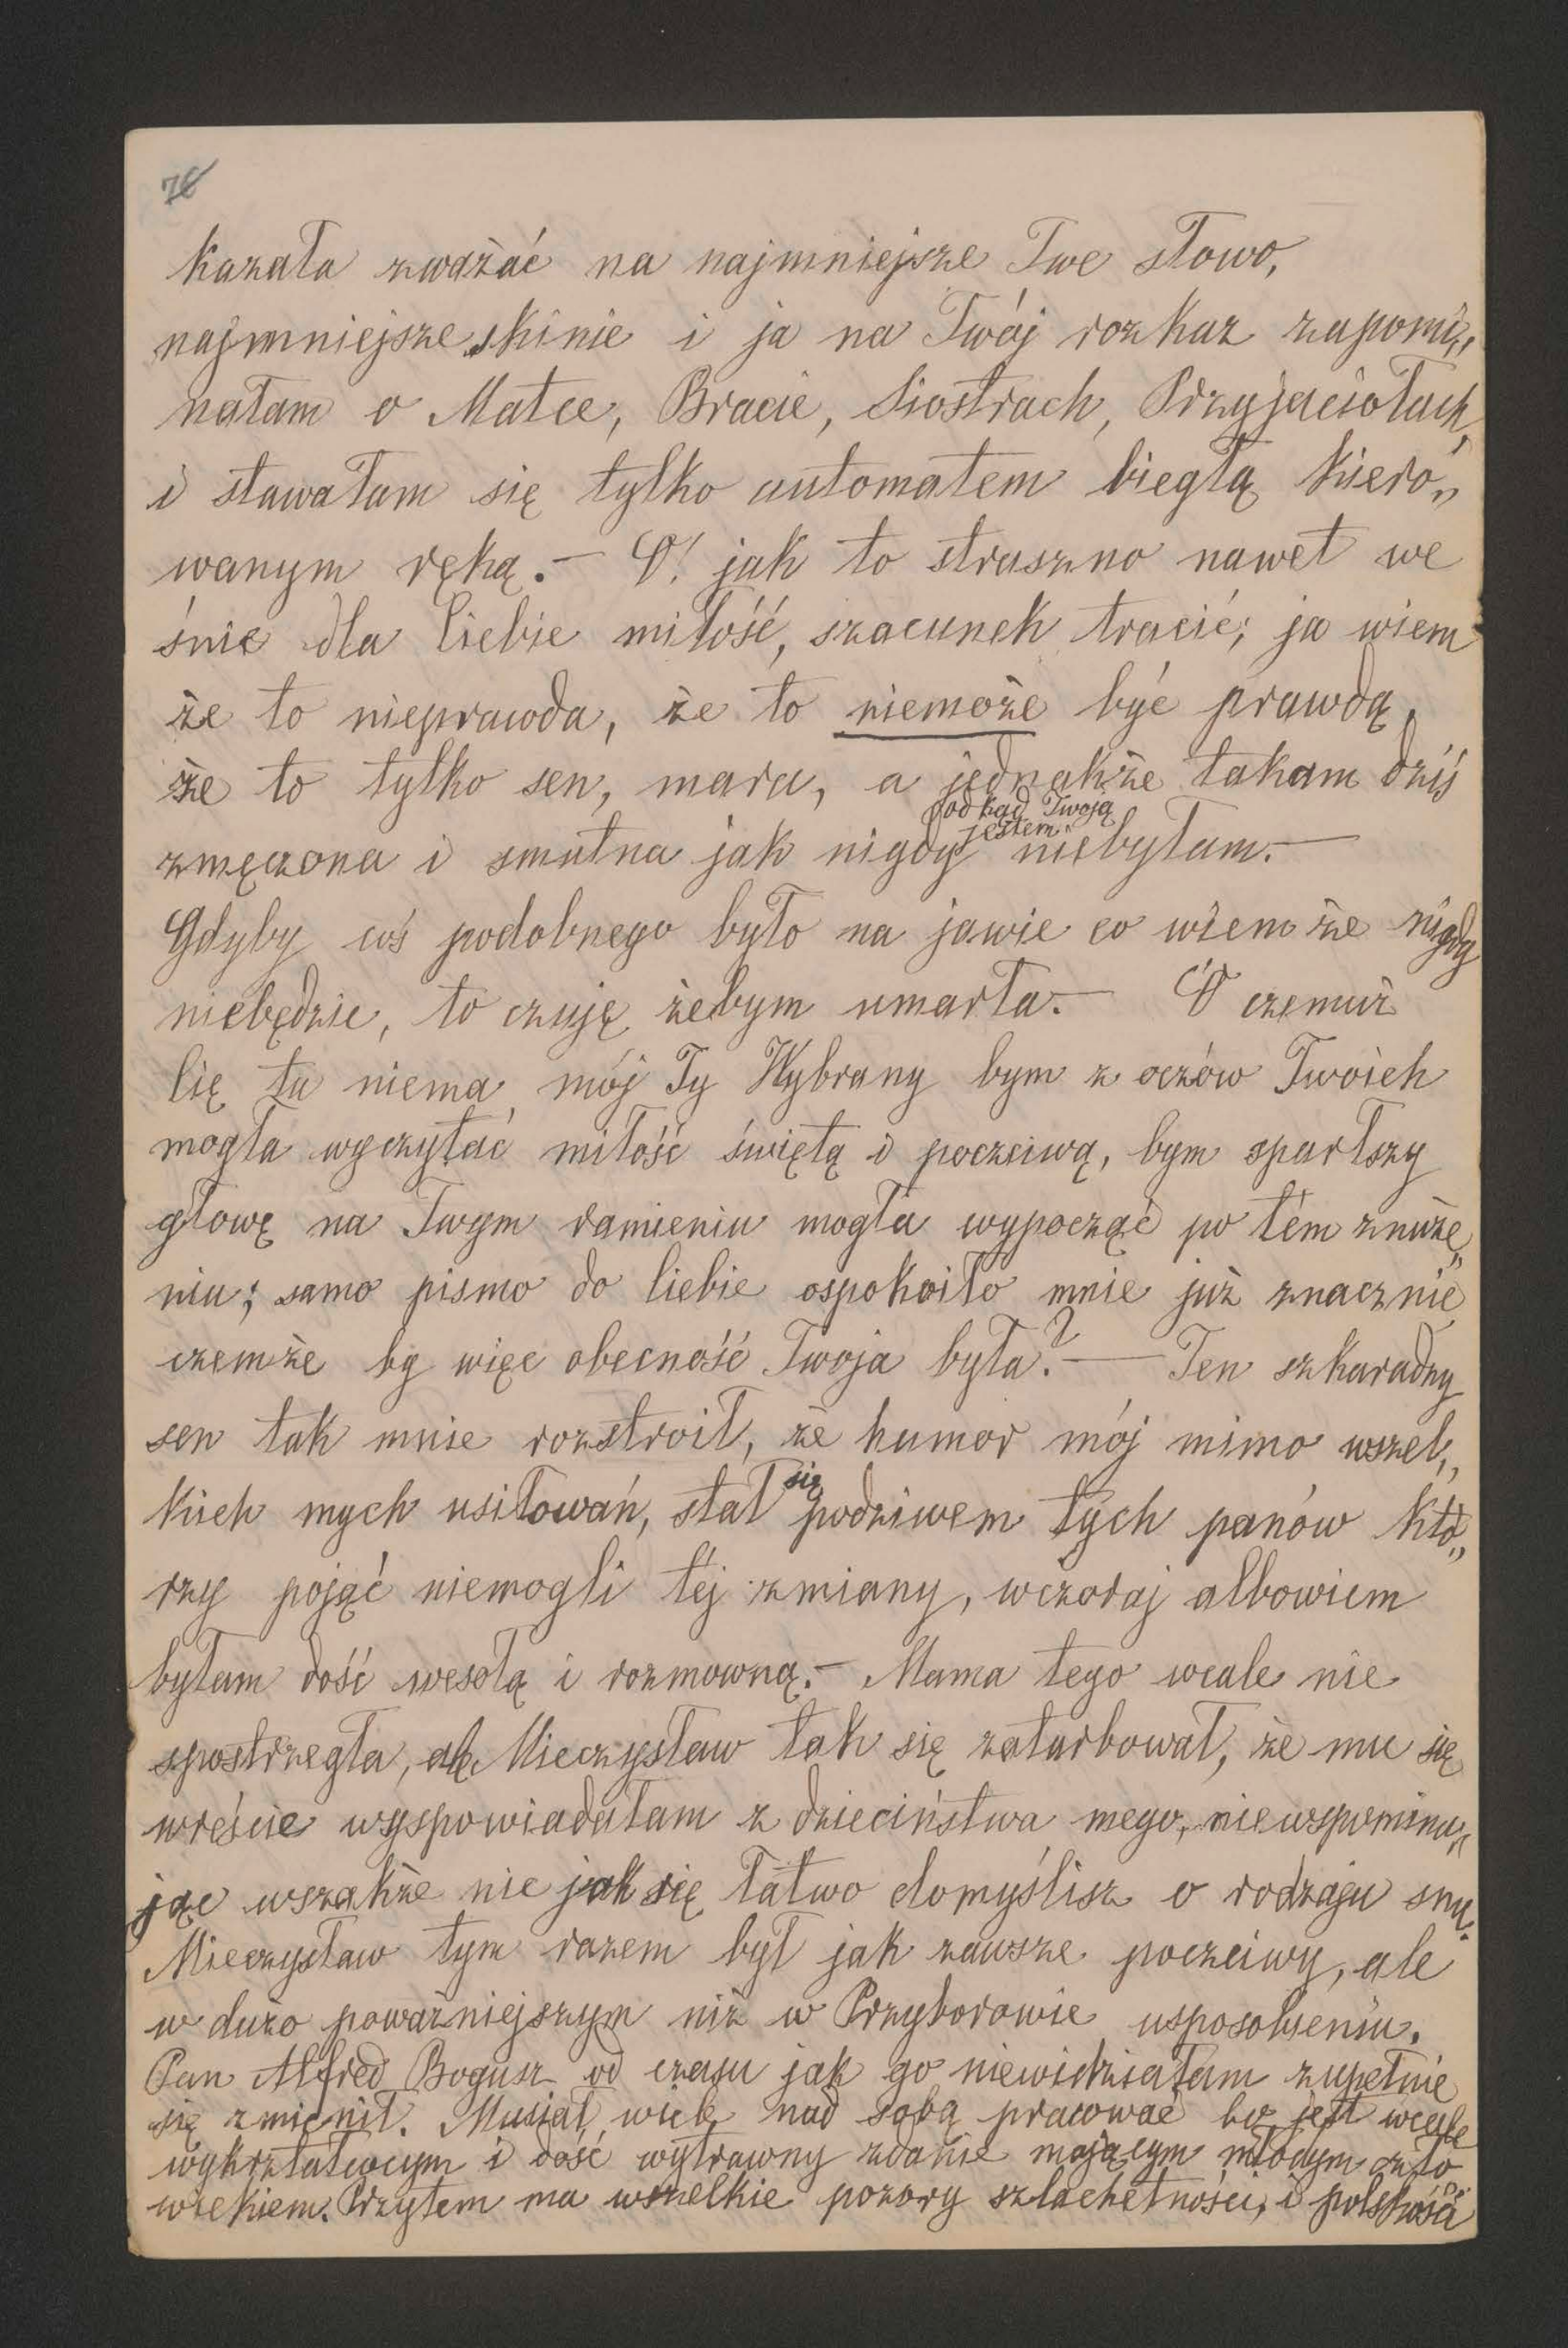 76
kazała zważać na najmniejsze Twe słowo,
najmniejsze skinie i ja na Twój rozkaz zapomi„
nałam o Matce, Bracie, Siostrach, Przyjaciołach,
i stawałam się tylko automatem biegłą kiero„
wanym ręką.— O! jak to straszno nawet we
śnie dla Ciebie miłość, szacunek tracić; ja wiem
że to nieprawda, że to niemoże być prawdą,
że to tylko sen, mara, a jednakże takam dziś
odkąd Twoją
jestem
zmęczona i smutna jak nigdy niebyłam.—
Gdyby coś podobnego było na jawie co wiem że nigdy
niebędzie, to czuję żebym umarła.— O czemuż
Cię tu niema mój Ty Wybrany bym z oczów Twoich
mogła wyczytać miłość świętą i poczciwą, bym sparłszy
głowę na Twym ramieniu mogła wypocząć po tém znuże„
niu; samo pismo do Ciebie ospokoiło mnie już znacznie
czemże by więc obecność Twoja była?— Ten szkaradny
sen tak mnie rozstroił, że humor mój mimo wszel„
kich mych usiłowań, stał się podziwem tych panów któ„
rzy pojąć niemogli téj zmiany, wczoraj albowiem
byłam dość wesołą i rozmowną.— Mama tego wcale nie
spostrzegła, ale Mieczysław tak się zaturbował, że mu się
wreście wyspowiadałam z dzieciństwa mego, niewspomina„
jąc wszakże nie jak się łatwo domyślisz o rodzaju snu.
Mieczysław tym razem był jak zawsze poczciwy, ale
w dużo poważniejszym niż w Przyborowie usposobieniu.
Pan Alfred Bogusz od czasu jak go niewidziałam zupełnie
się zmienił. Musiał wiele nad sobą pracować bo jest wcale
wykształconym i dość wytrawny zdanie mającym młodym czło„
wiekiem. Przytem ma wszelkie pozory szlachetności, i polskość